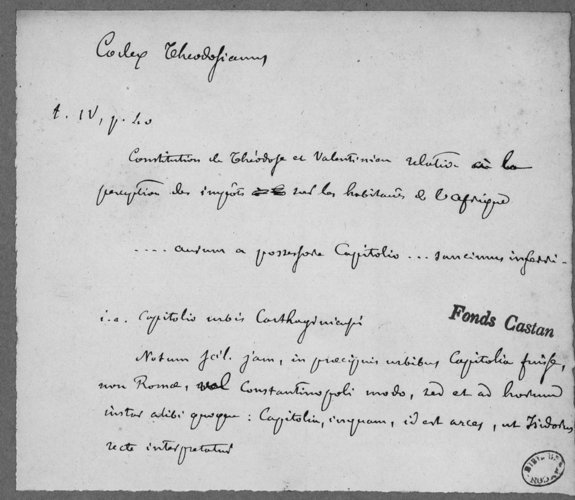 Codex Theodosianus
t. IV, p. 20
Constitution de Théodose et Valentinien relative à la
perception des impôts sur les habitants de l'Afrique
.... aurum a possessore Capitolio ... sancimus inferri.
i.e. Capitolio urbis Carthaginiensis
Fonds Castan
Notum scil. jam, in præcipuis urbibus Capitolia fuisse,
non Romæ, vel Constantinopoli modo, sed et ad horum
instar alibi quoque : Capitolia, inquam, id est arces, ut Isidorus
recte interpretatur